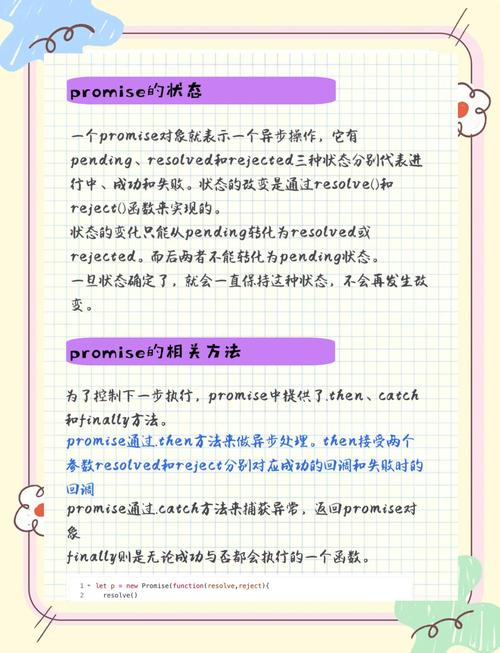 promise的状态
一个promise对象就表示一个异步操作，它有
pending、resolved和rejected三种状态分别代表进
行中、成功和失败。状态的改变是通过resolve()和
reject()函数来实现的。
状态的变化只能从pending转化为resolved或
rejected。而后两者不能转化为pending状态。
一旦状态确定了，就会一直保持这种状态，不会再发生改
变。
promise的相关方法
为了控制下一步执行，promise中提供了.then、catch
和finally方法。
promise通过.then方法来做异步处理。then接受两个
参数resolved和reject分别对应成功的回调和失败时的
回调
promise通过.catch方法来捕获异常，返回promise对
象
finally则是无论成功与否都会执行的一个函数。
1 let p = new Promise(function(resolve,reject){
2 resolve()